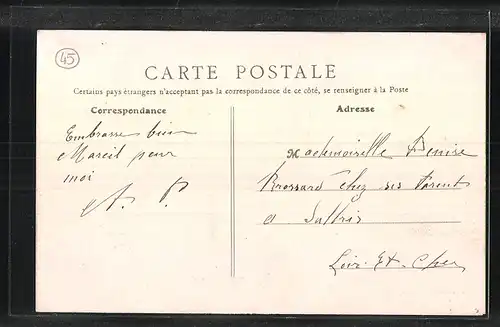 45
CARTE POSTALE
Certains pays étrangers n'acceptent pas la correspondance de ce côté, se renseigner à la Poste
Correspondance
Embrasse bien
Marcil pour
moi
A. P.
Adresse
Mademoiselle Denise
Brossard chez ses Parents
a Salbris
Loir-Et-Cher